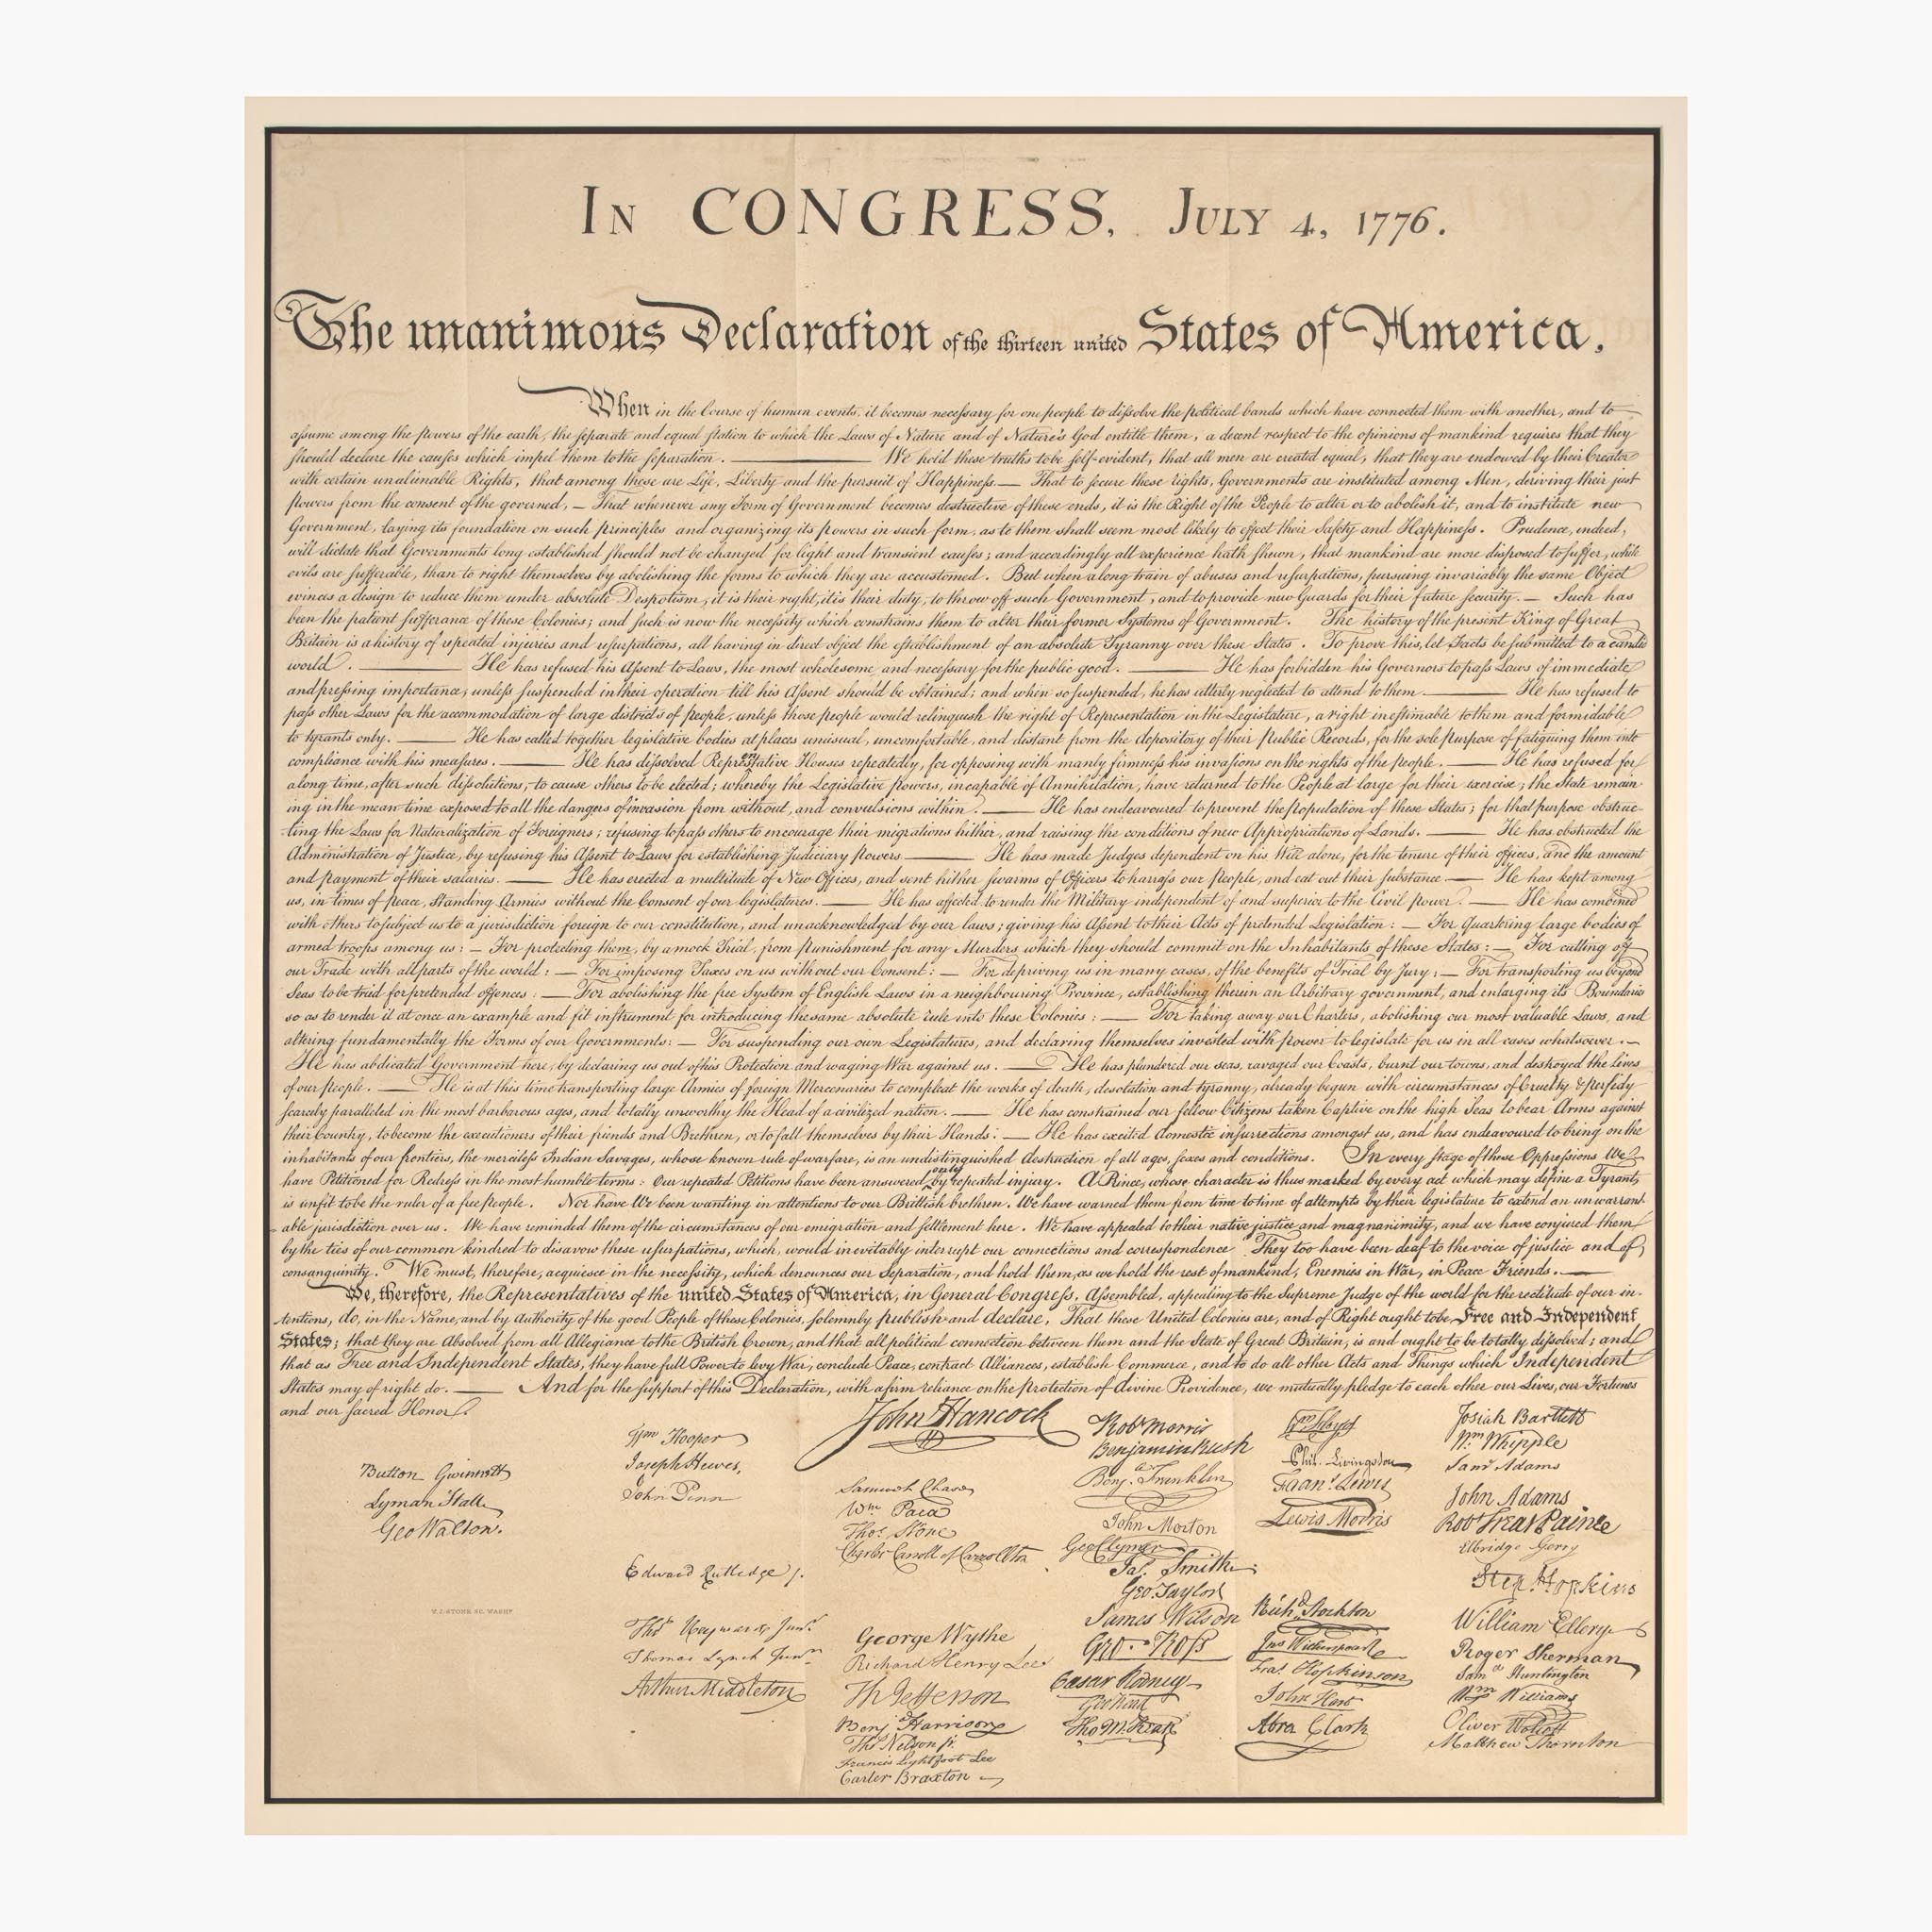 IN CONGRESS, JULY 4, 1776.
The unanimous Declaration of the thirteen united States of America,
When in the Course of human events, it becomes necessary for one people to dissolve the political bands which have connected them with another, and to
assume among the powers of the earth, the separate and equal station to which the Laws of Nature and of Nature's God entitle them, a decent respect to the opinions of mankind requires that they
should declare the causes which impel them to the separation. We hold these truths to be self-evident, that all men are created equal, that they are endowed by their Creator
with certain unalienable Rights, that among these are Life, Liberty and the pursuit of Happiness.— That to secure these rights, Governments are instituted among Men, deriving their just
powers from the consent of the governed, — That whenever any Form of Government becomes destructive of these ends, it is the Right of the People to alter or to abolish it, and to institute new
Government, laying its foundation on such principles and organizing its powers in such form, as to them shall seem most likely to effect their Safety and Happiness. Prudence, indeed,
will dictate that Governments long established should not be changed for light and transient causes; and accordingly all experience hath shewn, that mankind are more disposed to suffer, while
evils are sufferable, than to right themselves by abolishing the forms to which they are accustomed. But when a long train of abuses and usurpations, pursuing invariably the same Object
evinces a design to reduce them under absolute Despotism, it is their right, it is their duty, to throw off such Government, and to provide new Guards for their future security.— Such has
been the patient sufferance of these Colonies; and such is now the necessity which constrains them to alter their former Systems of Government. The history of the present King of Great
Britain is a history of repeated injuries and usurpations, all having in direct object the establishment of an absolute Tyranny over these States. To prove this, let Facts be submitted to a candid
world. — He has refused his Assent to Laws, the most wholesome and necessary for the public good. — He has forbidden his Governors to pass Laws of immediate
and pressing importance, unless suspended in their operation till his Assent should be obtained; and when so suspended, he has utterly neglected to attend to them — He has refused to
pass other Laws for the accommodation of large districts of people, unless those people would relinquish the right of Representation in the Legislature, a right inestimable to them and formidable
to tyrants only. — He has called together legislative bodies at places unusual, uncomfortable, and distant from the depository of their Public Records, for the sole purpose of fatiguing them into
compliance with his measures. — He has dissolved Representative Houses repeatedly, for opposing with manly firmness his invasions on the rights of the people. — He has refused for
a long time, after such dissolutions, to cause others to be elected; whereby the Legislative powers, incapable of Annihilation, have returned to the People at large for their exercise; the State remain
ing in the mean time exposed to all the dangers of invasion from without, and convulsions within. — He has endeavoured to prevent the population of these States; for that purpose obstruc-
-ting the Laws for Naturalization of Foreigners; refusing to pass others to encourage their migrations hither, and raising the conditions of new Appropriations of Lands. — He has obstructed the
Administration of Justice, by refusing his Assent to Laws for establishing Judiciary powers — He has made Judges dependent on his Will alone, for the tenure of their offices, and the amount
and payment of their salaries. — He has erected a multitude of New Offices, and sent hither swarms of Officers to harrass our people, and eat out their substance. — He has kept among
us, in times of peace, Standing Armies without the Consent of our legislatures. — He has affected to render the Military independent of and superior to the Civil power. — He has combined
with others to subject us to a jurisdiction foreign to our constitution, and unacknowledged by our laws; giving his Assent to their Acts of pretended Legislation: — For Quartering large bodies of
armed troops among us: — For protecting them, by a mock Trial, from punishment for any Murders which they should commit on the Inhabitants of these States: — For cutting off
our Trade with all parts of the world: — For imposing Taxes on us without our Consent: — For depriving us in many cases, of the benefits of Trial by Jury: — For transporting us beyond
Seas to be tried for pretended offences: — For abolishing the free System of English Laws in a neighbouring Province, establishing therein an Arbitrary government, and enlarging its Boundaries
so as to render it at once an example and fit instrument for introducing the same absolute rule into these Colonies: — For taking away our Charters, abolishing our most valuable Laws, and
altering fundamentally the Forms of our Governments: — For suspending our own Legislatures, and declaring themselves invested with power to legislate for us in all cases whatsoever. —
He has abdicated Government here, by declaring us out of his Protection and waging War against us. — He has plundered our seas, ravaged our Coasts, burnt our towns, and destroyed the lives
of our people. — He is at this time transporting large Armies of foreign Mercenaries to compleat the works of death, desolation and tyranny, already begun with circumstances of Cruelty & perfidy
scarcely paralleled in the most barbarous ages, and totally unworthy the Head of a civilized nation. — He has constrained our fellow Citizens taken Captive on the high Seas to bear Arms against
their Country, to become the executioners of their friends and Brethren, or to fall themselves by their Hands. — He has excited domestic insurrections amongst us, and has endeavoured to bring on the
inhabitants of our frontiers, the merciless Indian Savages, whose known rule of warfare, is an undistinguished destruction of all ages, sexes and conditions. In every stage of these Oppressions We
have Petitioned for Redress in the most humble terms: Our repeated Petitions have been answered only by repeated injury. A Prince, whose character is thus marked by every act which may define a Tyrant,
is unfit to be the ruler of a free people. Nor have We been wanting in attentions to our Brittish brethren. We have warned them from time to time of attempts by their legislature to extend an unwarrant-
able jurisdiction over us. We have reminded them of the circumstances of our emigration and settlement here. We have appealed to their native justice and magnanimity, and we have conjured them
by the ties of our common kindred to disavow these usurpations, which, would inevitably interrupt our connections and correspondence They too have been deaf to the voice of justice and of
consanguinity. We must, therefore, acquiesce in the necessity, which denounces our Separation, and hold them, as we hold the rest of mankind, Enemies in War, in Peace Friends. —
We, therefore, the Representatives of the united States of America, in General Congress, Assembled, appealing to the Supreme Judge of the world for the rectitude of our in-
tentions, do, in the Name, and by Authority of the good People of these Colonies, solemnly publish and declare, That these United Colonies are, and of Right ought to be Free and Independent
States; that they are Absolved from all Allegiance to the British Crown, and that all political connection between them and the State of Great Britain, is and ought to be totally dissolved; and
that as Free and Independent States, they have full Power to levy War, conclude Peace, contract Alliances, establish Commerce, and to do all other Acts and Things which Independent
States may of right do. — And for the support of this Declaration, with a firm reliance on the protection of divine Providence, we mutually pledge to each other our Lives, our Fortunes
and our sacred Honor.
Button Gwinnett
Lyman Hall
Geo Walton.
W. J. STONE SC. WASHN
Wm Hooper
Joseph Hewes,
John Penn
Edward Rutledge /.
Thos Heyward Junr.
Thomas Lynch Junr.
Arthur Middleton
John Hancock
Samuel Chase
Wm. Paca
Thos. Stone
Charles Carroll of Carrollton
George Wythe
Richard Henry Lee
Th Jefferson
Benj Harrison
Thos Nelson jr.
Francis Lightfoot Lee
Carter Braxton
Robt Morris
Benjamin Rush
Benj. Franklin
John Morton
Geo Clymer
Jas. Smith
Geo. Taylor
James Wilson
Geo. Ross
Caesar Rodney
Geo Read
Tho M:Kean
Wm Floyd
Phil. Livingston
Frans. Lewis
Lewis Morris
Richd. Stockton
Jno Witherspoon
Fras. Hopkinson
John Hart
Abra Clark
Josiah Bartlett
Wm. Whipple
Saml Adams
John Adams
Robt Treat Paine
Elbridge Gerry
Step. Hopkins
William Ellery
Roger Sherman
Saml Huntington
Wm Williams
Oliver Wolcott
Matthew Thornton